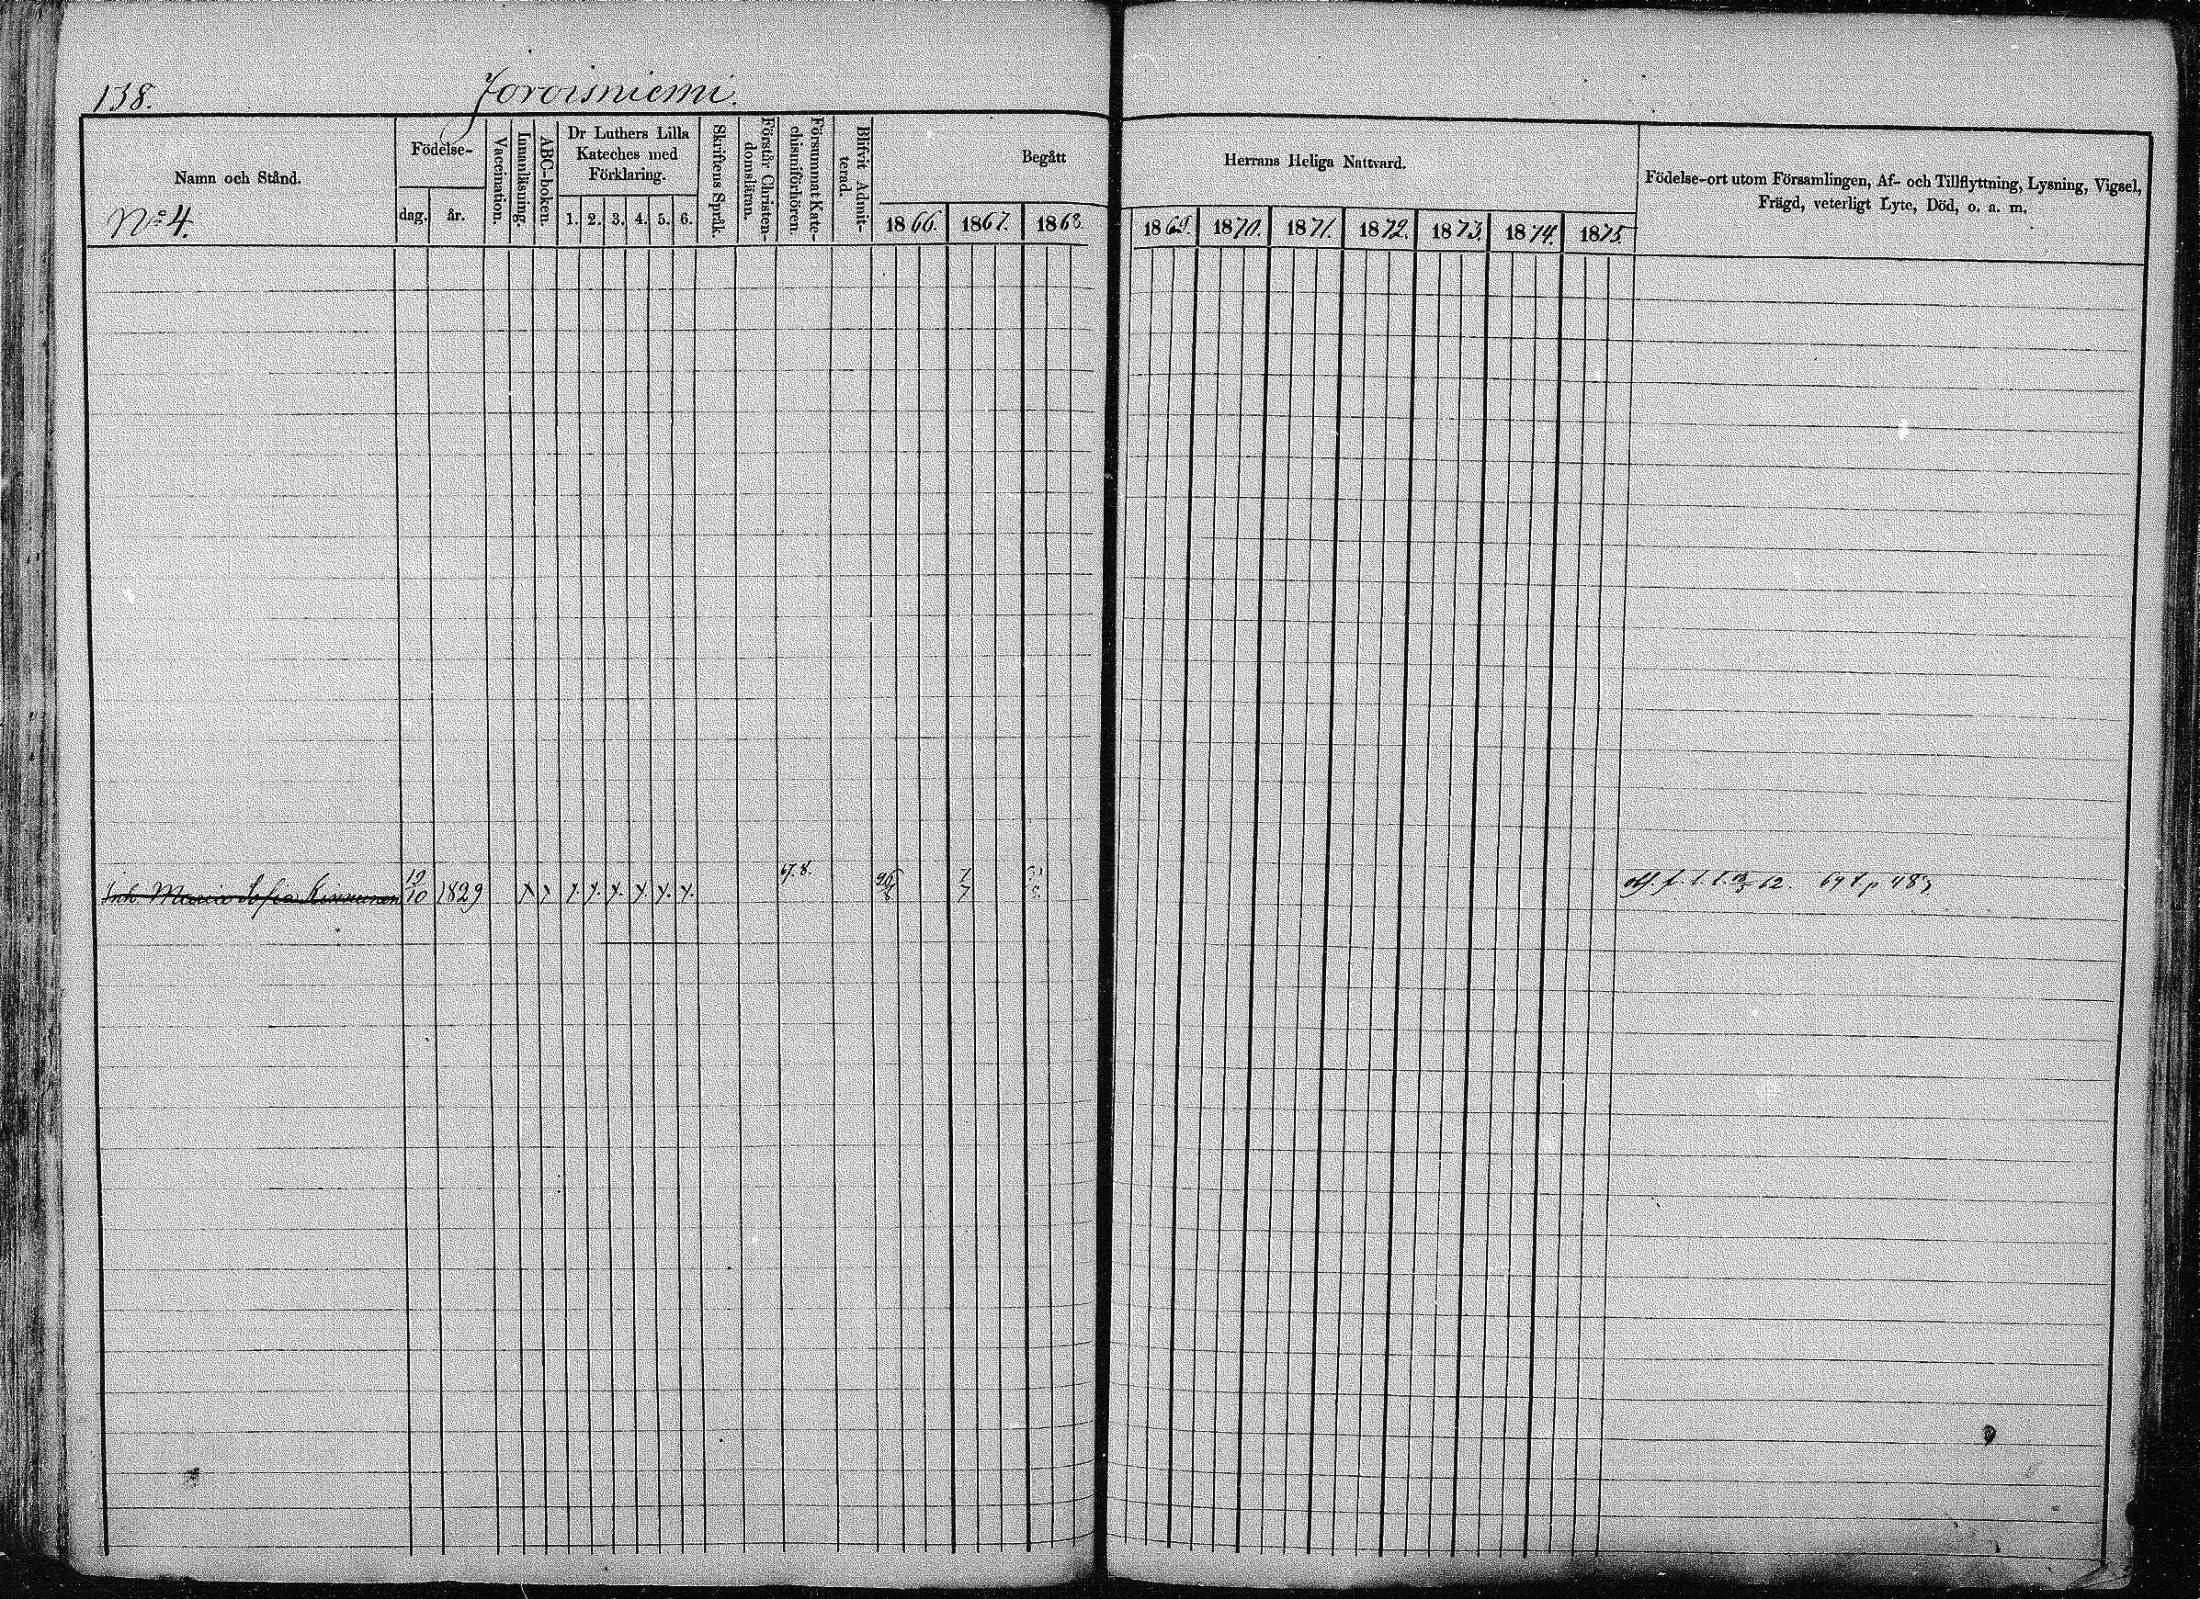 138. Joroisniemi.
Namn och Stånd.
No 4.
Födelse-
dag. år.
Vaccination.
Innanläsning.
ABC-boken.
Dr Luthers Lilla
Kateches med
Förklaring.
1. 2. 3. 4. 5. 6.
Skriftens Språk.
Förstår Christen-
domsläran.
Försummat Kate-
chismiförhören.
Blifvit Admit-
terad.
Begått
1866. 1867. 1868.
Herrans Heliga Nattvard.
1869. 1870. 1871. 1872. 1873. 1874. 1875.
Födelse-ort utom Församlingen, Af- och Tillflyttning, Lysning, Vigsel,
Frägd, veterligt Lyte, Död, o. a. m.
Inh. Maria Sofia 19/10 1829 67.8. 7/7 62.